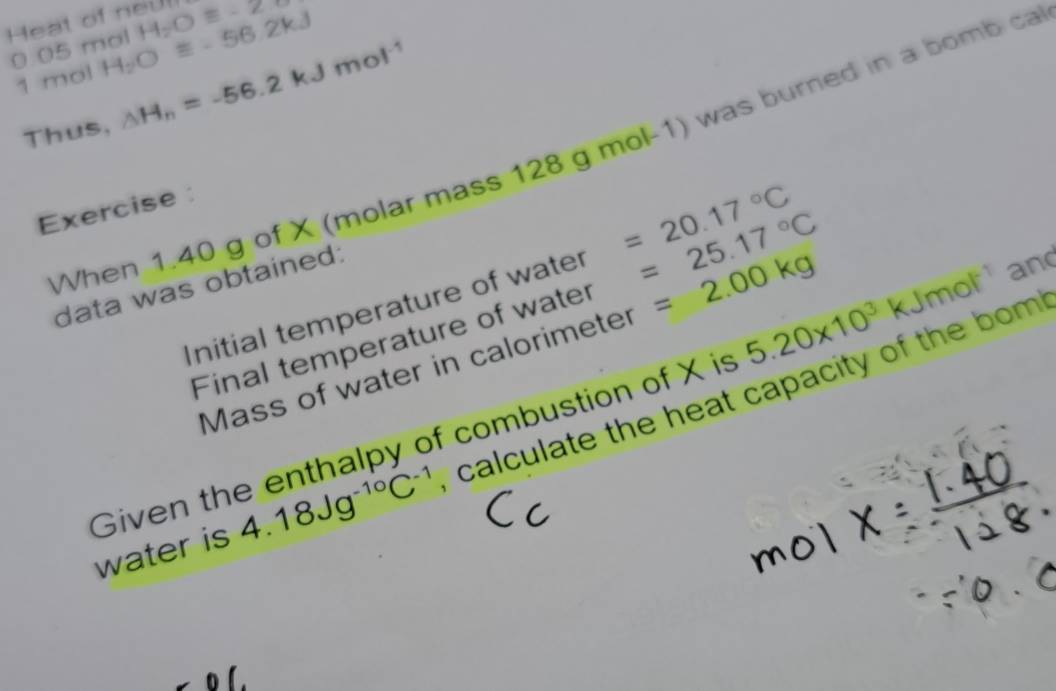 Heat of
0.05 mol H₂O ≡ - 2
1 mol H₂O ≡ - 56.2kJ
Thus, ΔHₙ = -56.2 kJ mol⁻¹
Exercise :
When 1.40 g of X (molar mass 128 g mol-1) was burned in a bomb
data was obtained:
Initial temperature of water = 20.17 °C
Final temperature of water = 25.17 °C
Mass of water in calorimeter = 2.00 kg
Given the enthalpy of combustion of X is 5.20x10³ kJmol⁻¹ and
water is 4.18Jg⁻¹°C⁻¹, calculate the heat capacity of the bomb
Cc
mol X = 1.40
128.
= 0.0